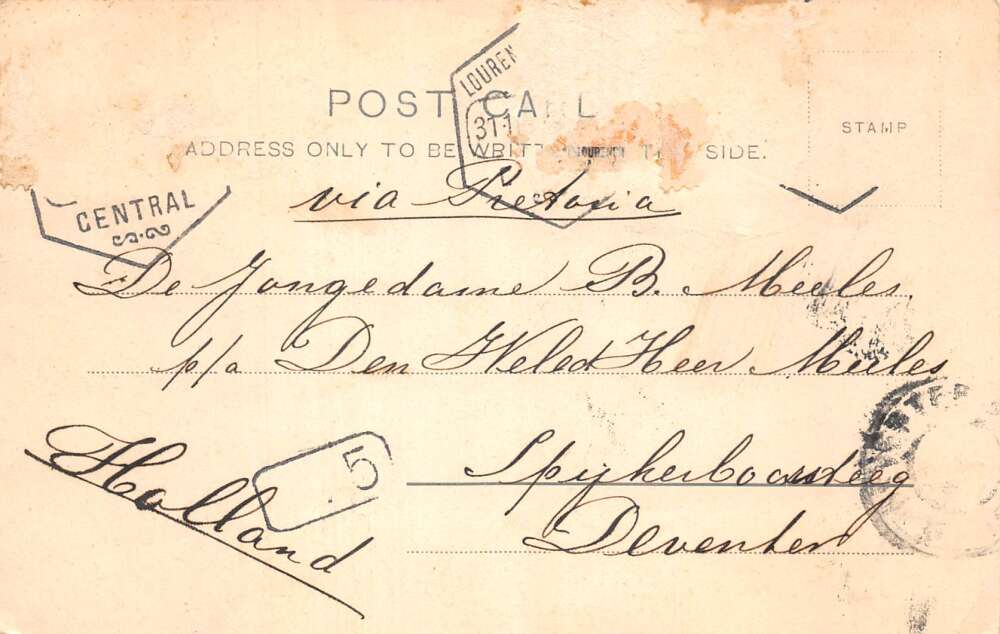 POST CA L
ADDRESS ONLY TO BE WRITT TH SIDE.
STAMP
LOUREN
31·1
LOURENÇO
CENTRAL
via Pretoria
De Jongedame B. Meeles
p/a Den WeledHeer Meeles
Spijkerboorsteeg
Deventer
Holland
5